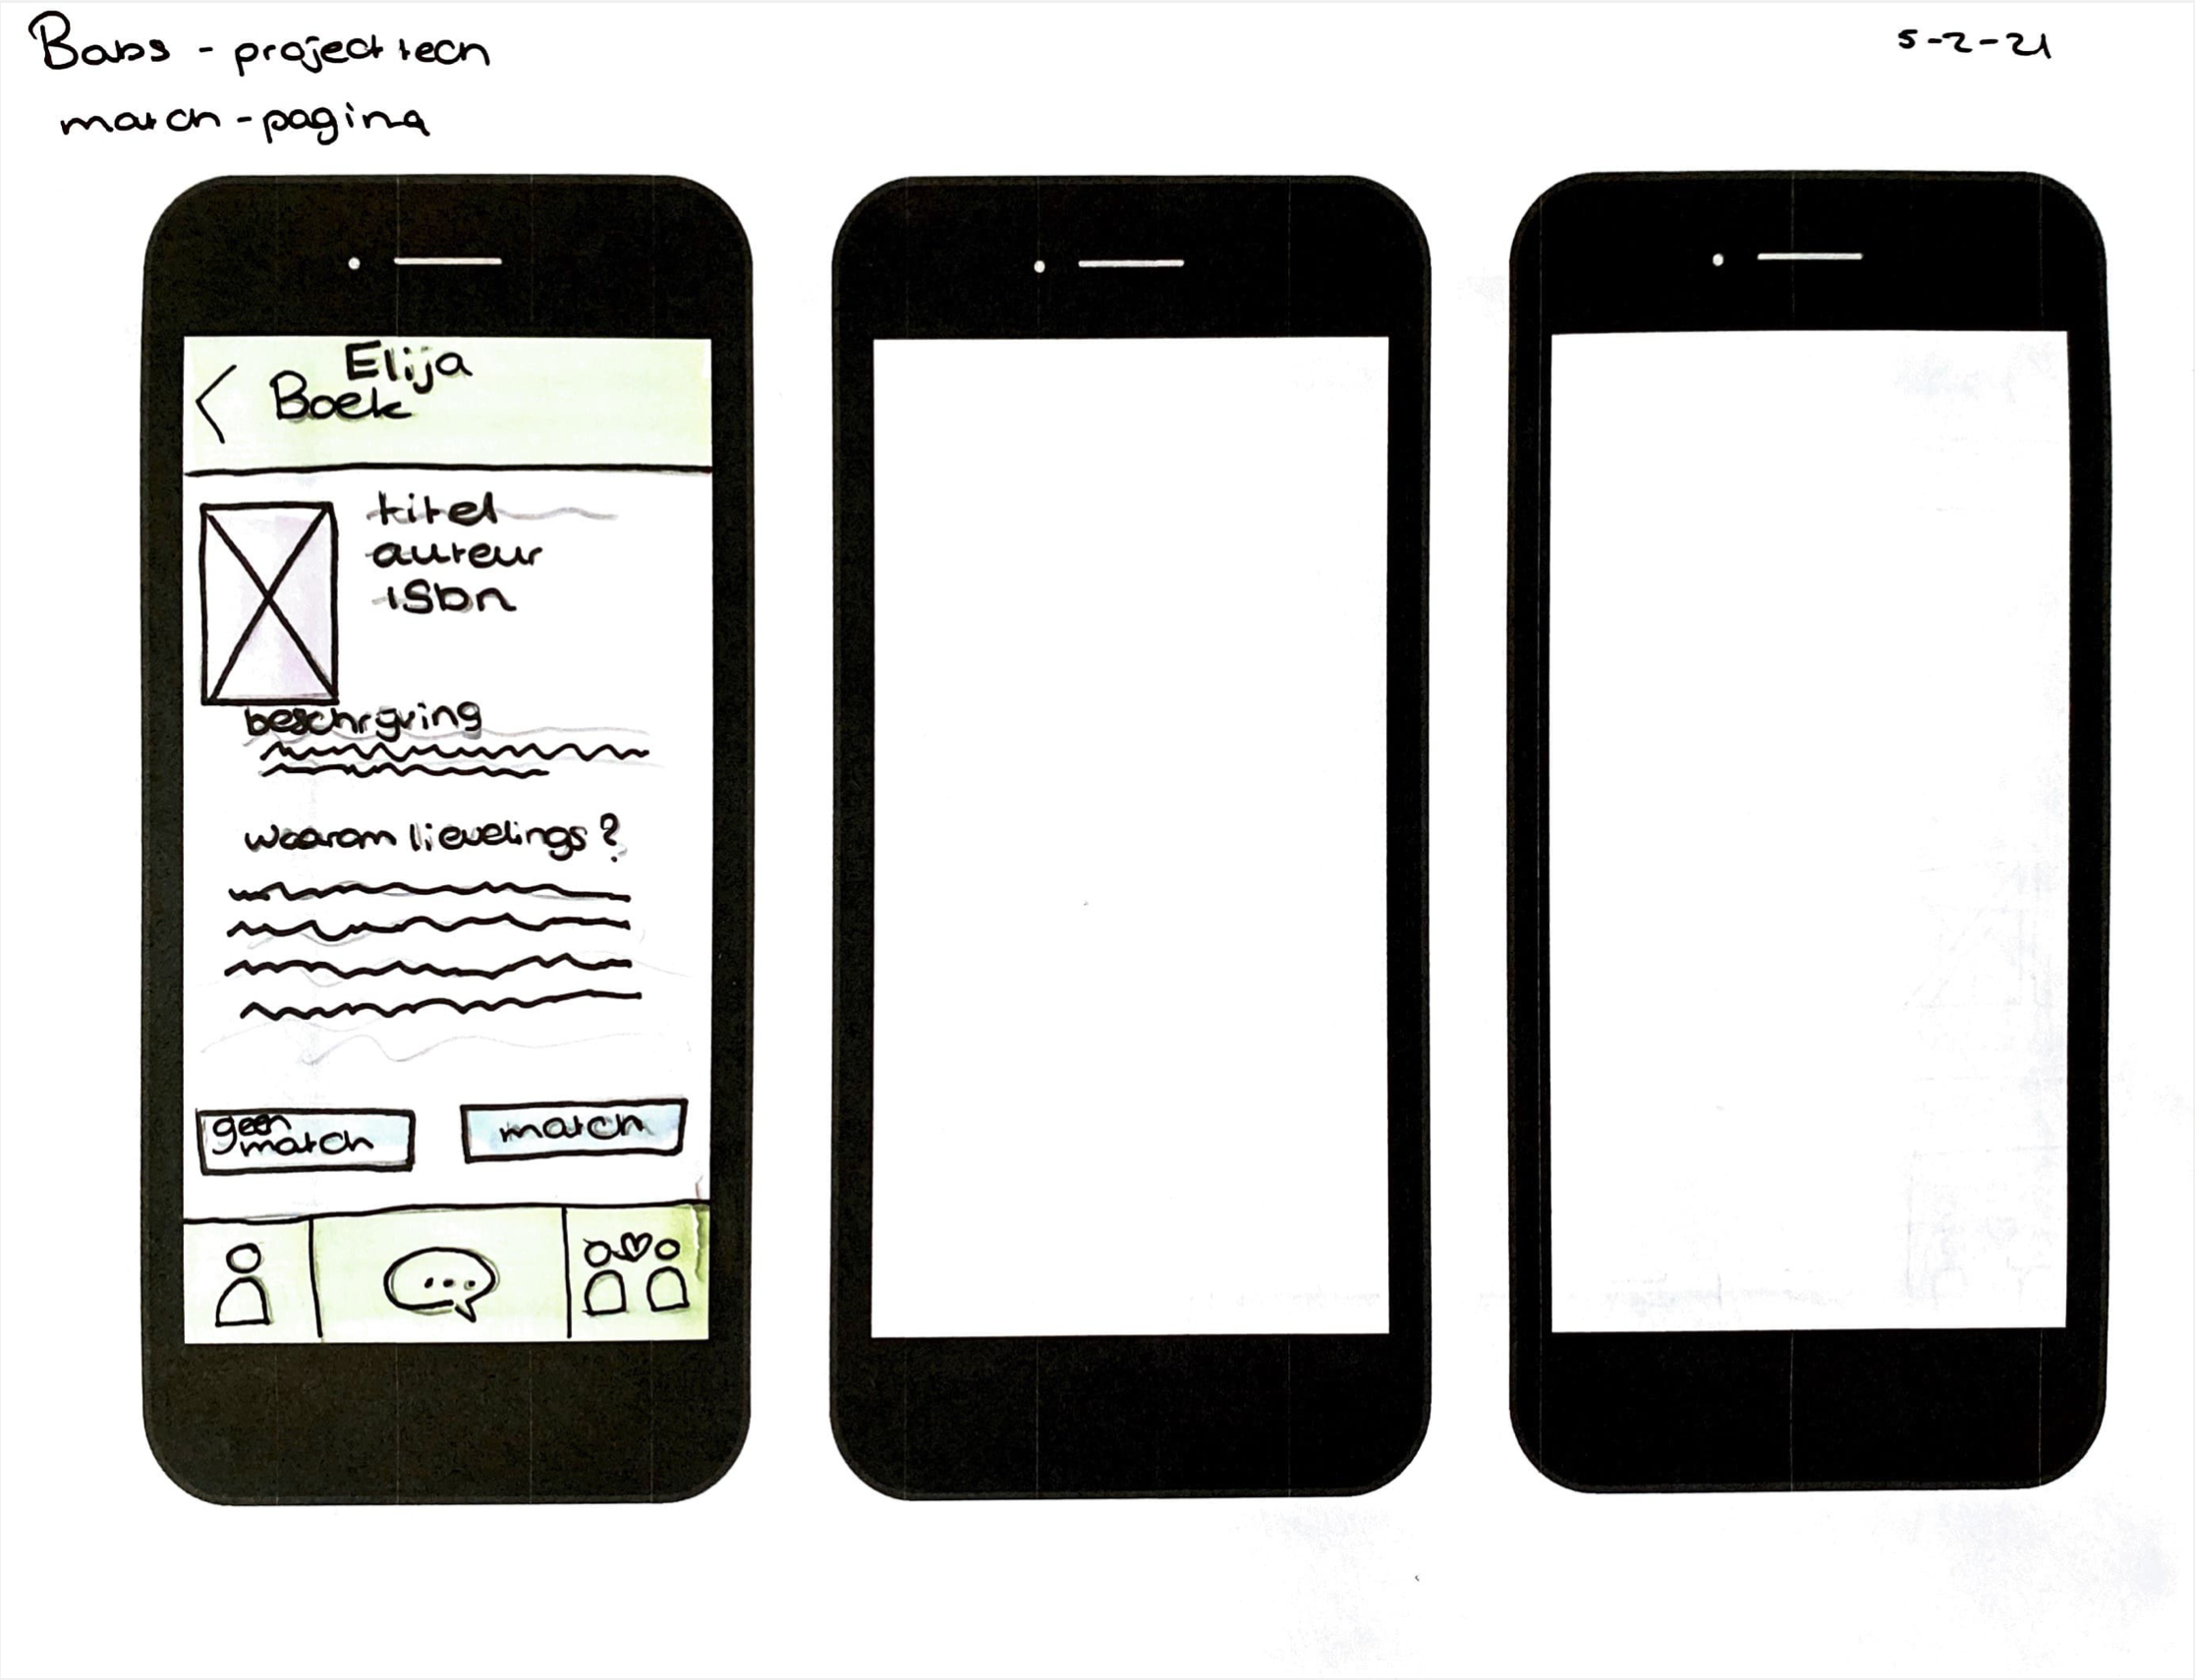 Babs - project tech
5-2-21
match - pagina
Elija
Boek
titel
auteur
isbn
beschrijving
waarom lievelings?
geen
match
match